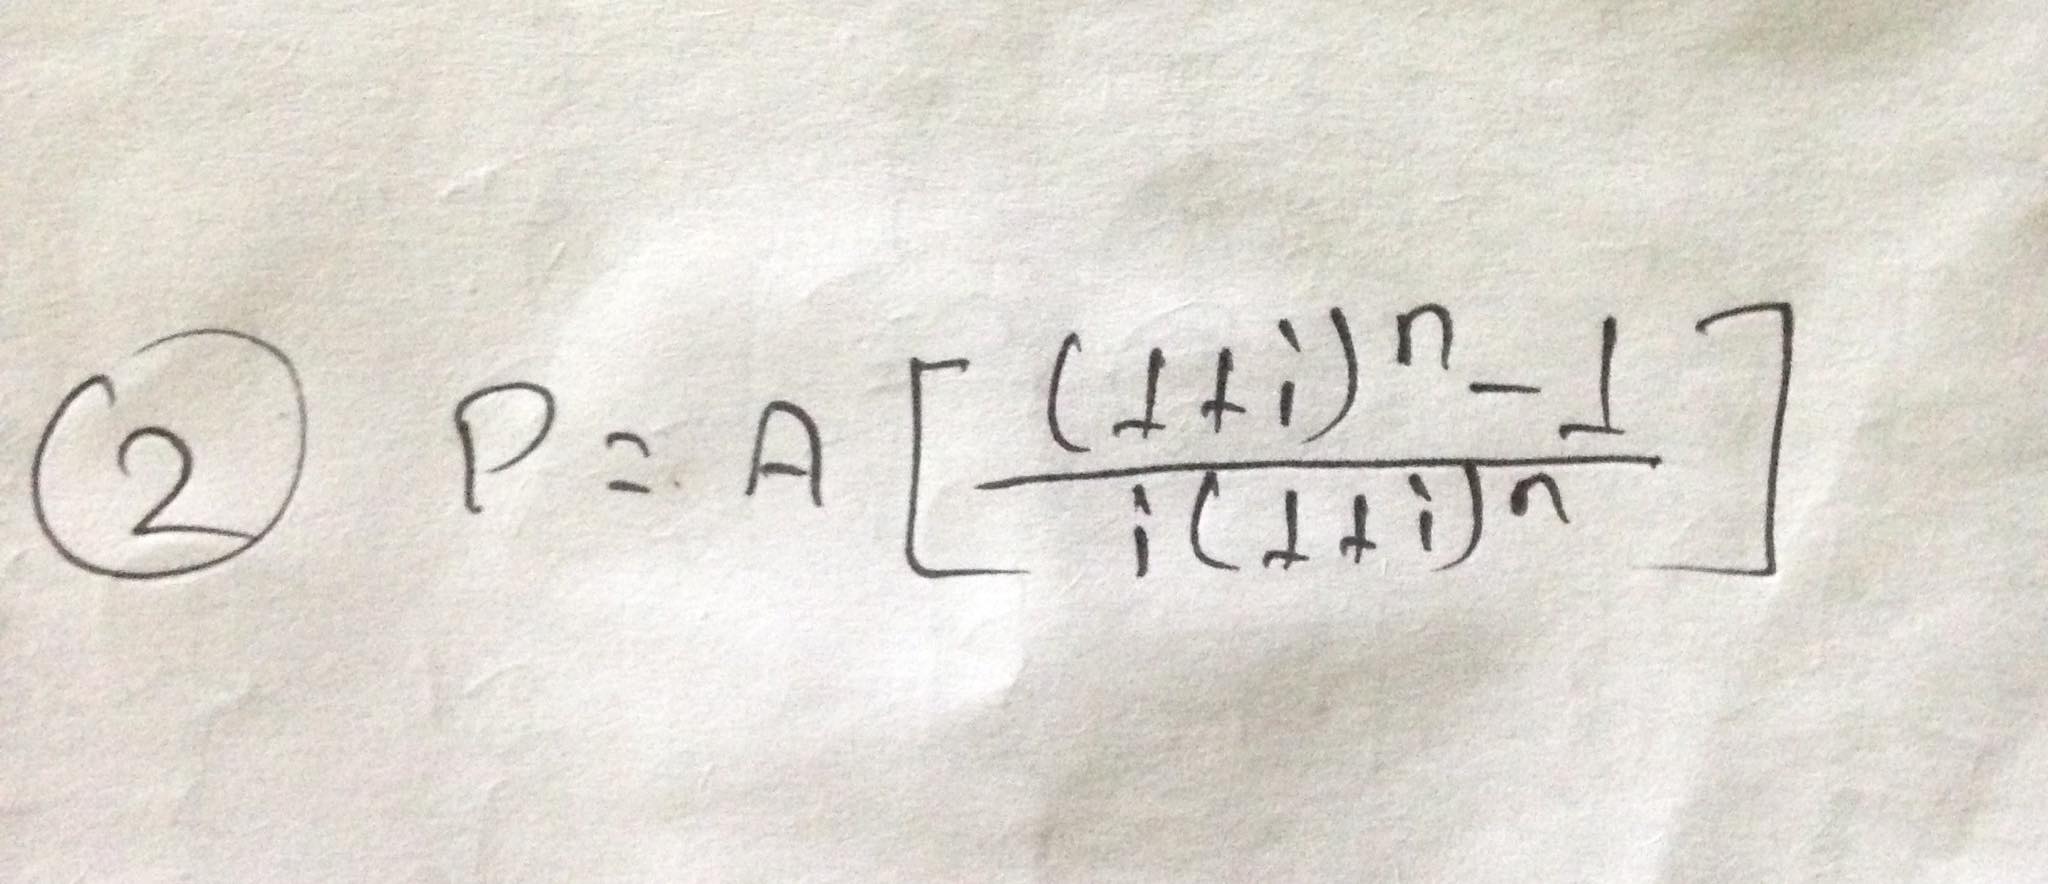 ② P = A [ ((1+i)ⁿ - 1) / (i(1+i)ⁿ) ]